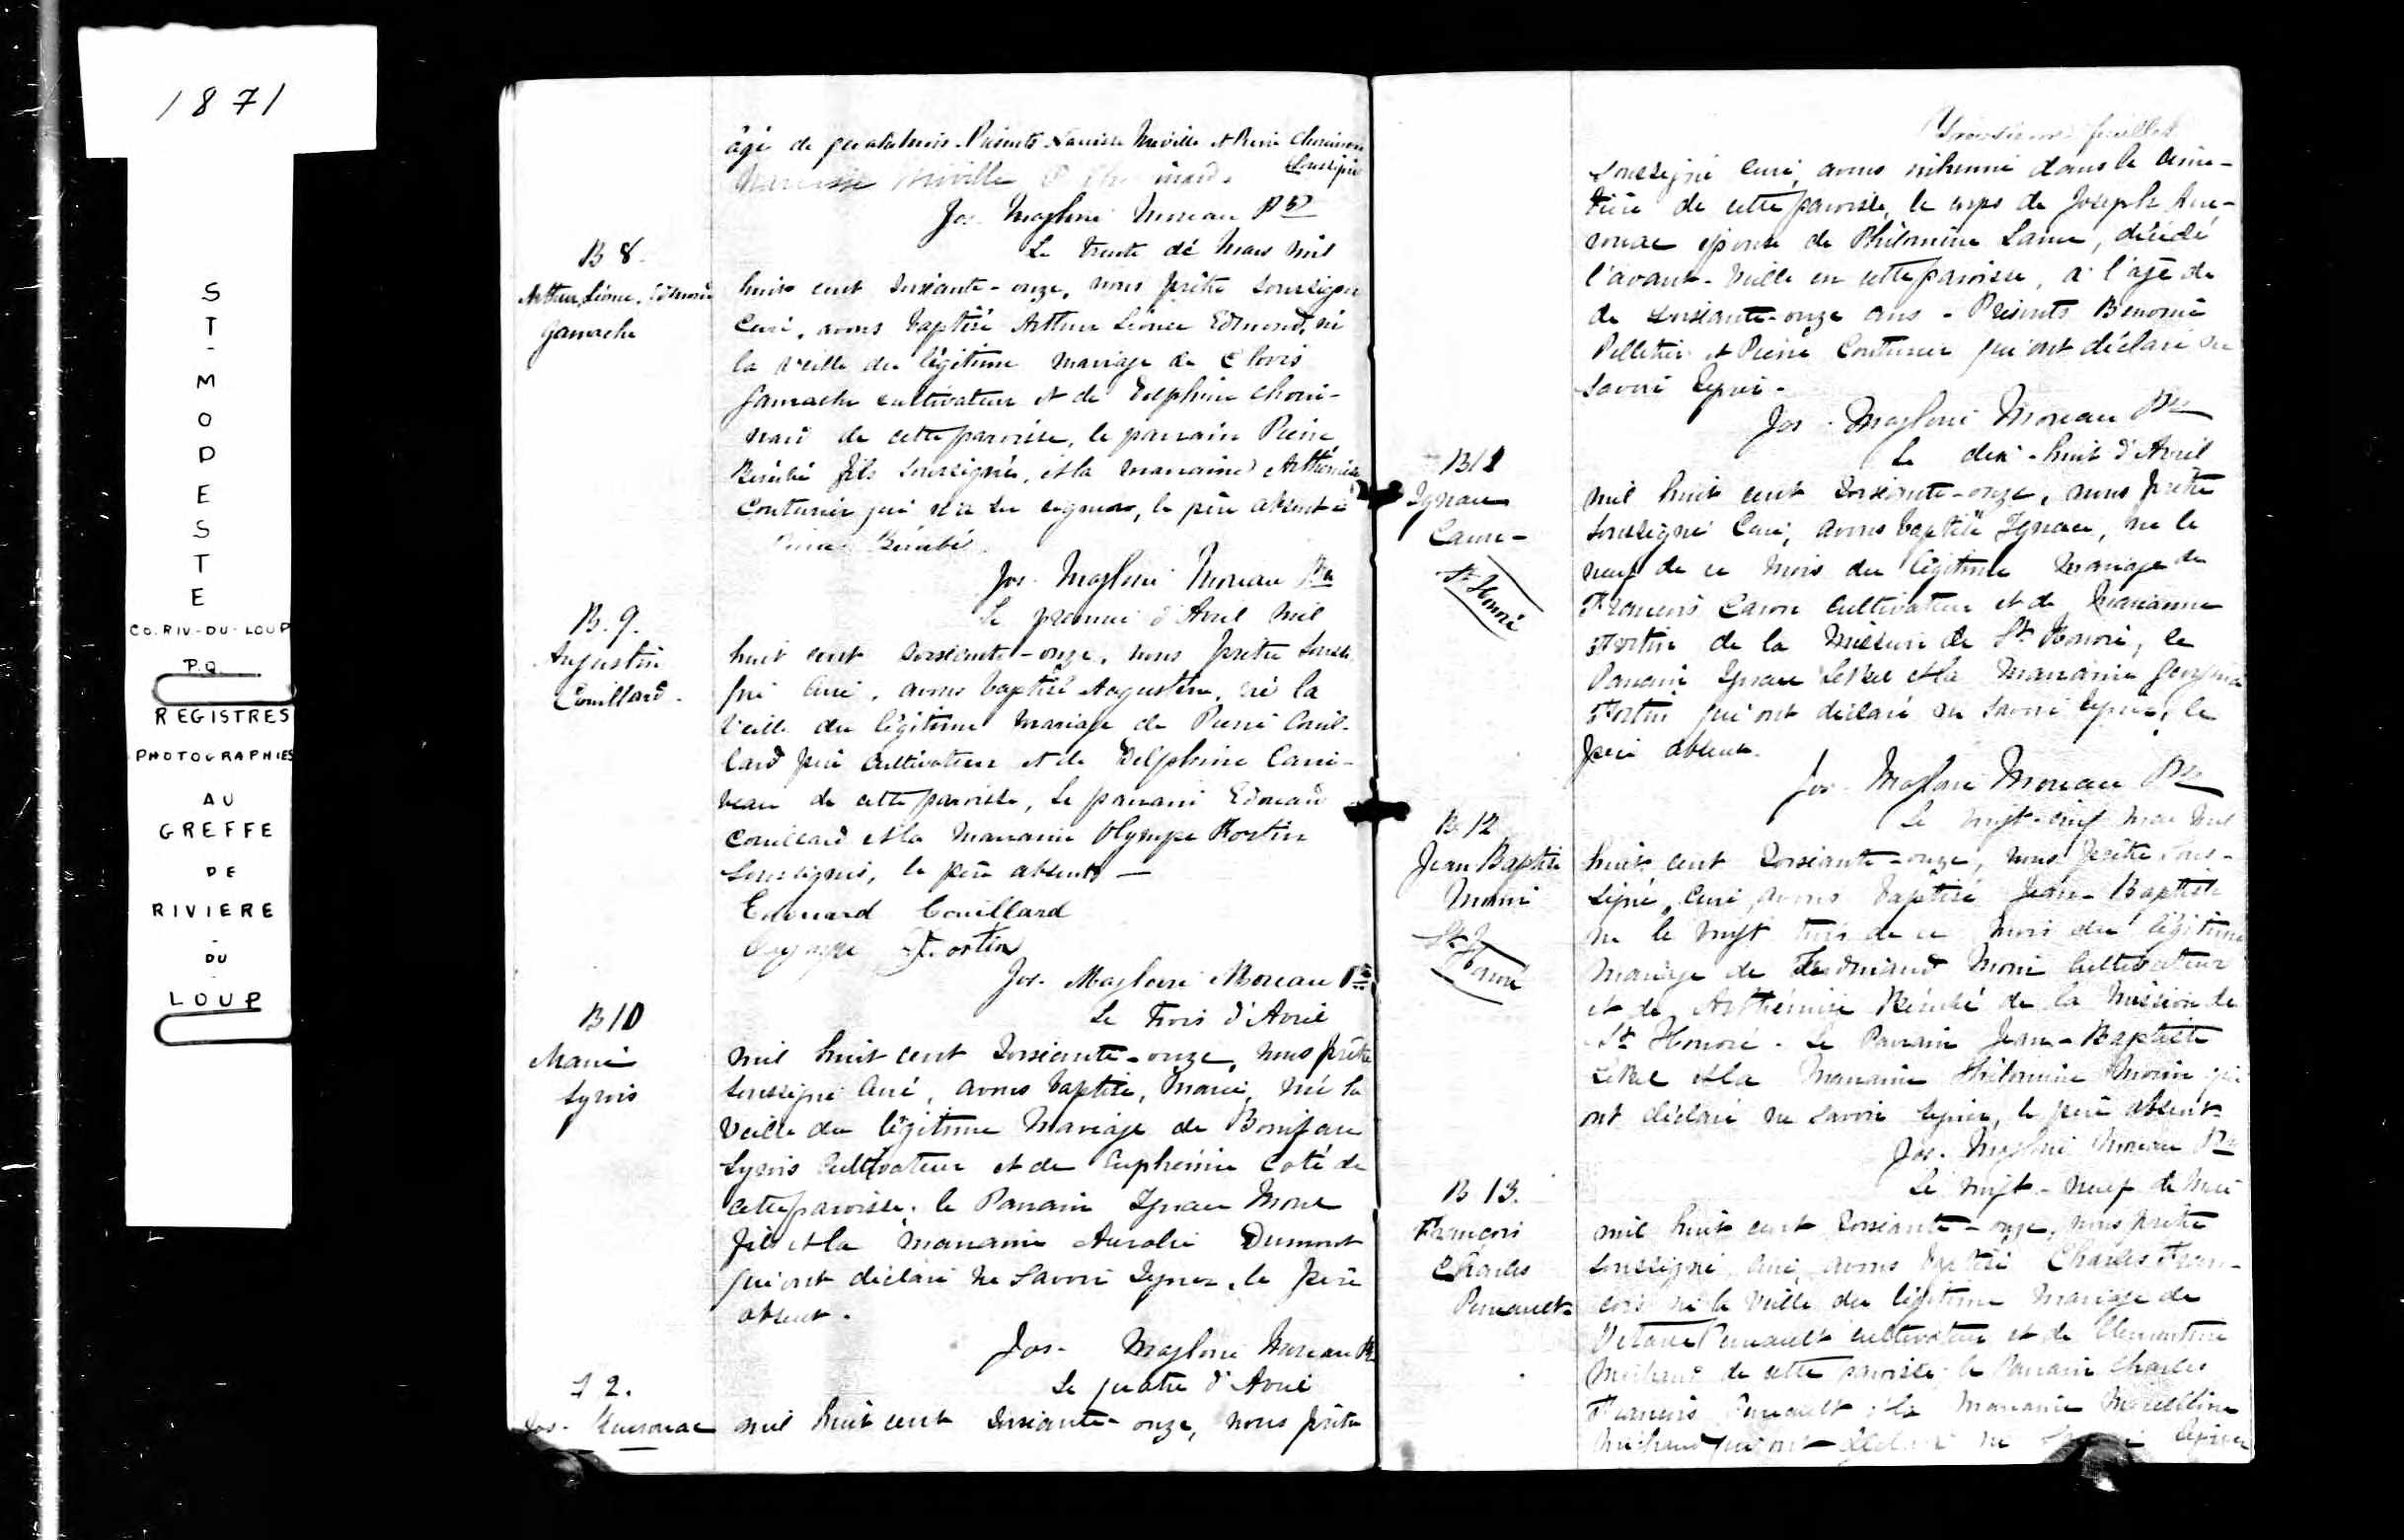 1871
ST-MODESTE
CO. RIV-DU-LOUP
P.Q.
REGISTRES
PHOTOGRAPHIES
AU
GREFFE
DE
RIVIERE
DU
LOUP
âgé de quatre mois. Présents Narcisse Miville et Pierre Chouinard
soussignés
Narcisse Miville
Jos. Magloire Moreau Ptre
B 8.
Arthur, Léonce, Edmond
Gamache
Le trente de Mars mil
huit cent soixante-onze, nous prêtre soussigné
Curé, avons baptisé Arthur Léonce Edmond, né
la veille du légitime mariage de Clovis
Gamache cultivateur et de Delphine Choui-
nard de cette paroisse, le parrain Pierre
Bérubé fils soussigné, et la marraine Arthémise
Couturier qui n'a su signer, le père absent
Bérubé
Jos. Magloire Moreau Ptre
B. 9.
Augustin
Couillard.
Le premier d'Avril mil
huit cent soixante-onze, nous prêtre soussi-
gné Curé, avons baptisé Augustin, né la
veille du légitime mariage de Pierre Couil-
lard père cultivateur et de Delphine Carri-
veau de cette paroisse, le parrain Edouard
Couillard et la marraine Olympe Fortin
soussignés, le père absent —
Edouard Couillard
Olympe Fortin
Jos. Magloire Moreau Ptre
B 10
Marie
Syrois
Le trois d'Avril
mil huit cent soixante-onze, nous prêtre
soussigné Curé, avons baptisé, Marie, née la
veille du légitime mariage de Boniface
Syrois cultivateur et de Euphémie Coté de
cette paroisse; le Parrain Ignace
fils et la marraine Aurélie Dumont
qui ont déclaré ne savoir signer, le père
absent.
Jos. Magloire Moreau Ptre
S 2.
Jos.
Le quatre d'Avril
mil huit cent soixante-onze, nous prêtre
Troisième feuillet
soussigné curé, avons inhumé dans le cime-
tière de cette paroisse, le corps de Joseph
époux de Philomène, décédé
l'avant-veille en cette paroisse, à l'age de
de soixante-onze ans - Présents Benomé
Pelletier et Pierre Couturier qui ont déclaré ne
savoir signer.
Jos. Magloire Moreau Ptre
B 11
Ignace
Caron -
St Honoré
Le dix-huit d'Avril
mil huit cent soixante-onze, nous prêtre
soussigné Curé, avons baptisé Ignace, né le
neuf de ce mois du légitime mariage de
François Caron cultivateur et de Marianne
Fortin de la Mission de St Honoré, le
Parrain Ignace et la marraine
Fortin qui ont déclaré ne savoir signer, le
père absent.
Jos. Magloire Moreau Ptre
B. 12
Jean Baptiste
Morin
St Honoré
Le vingt-cinq mai mil
huit cent soixante-onze, nous prêtre sous-
signé, curé avons baptisé Jean-Baptiste
né le vingt trois de ce mois du légitime
mariage de Ferdinand Morin cultivateur
et de Arthémise Bérubé de la Mission de
St Honoré. Le Parrain Jean-Baptiste
et la Marraine Philomène Morin qui
ont déclaré ne savoir signer, le père absent.
Jos. Magloire Moreau Ptre
B 13.
François
Charles
Le vingt-neuf de Mai
mil huit cent soixante-onze, nous prêtre
soussigné curé, avons baptisé Charles Fran-
çois né la veille du légitime mariage de
cultivateur et de Clementine
Michaud de cette paroisse le Parrain Charles
François et la Marraine Marcelline
Michaud qui ont déclaré ne savoir signer